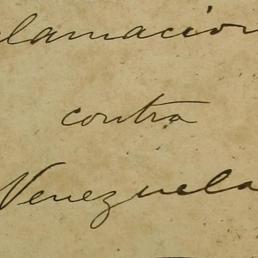 clamacion
contra
Venezuela